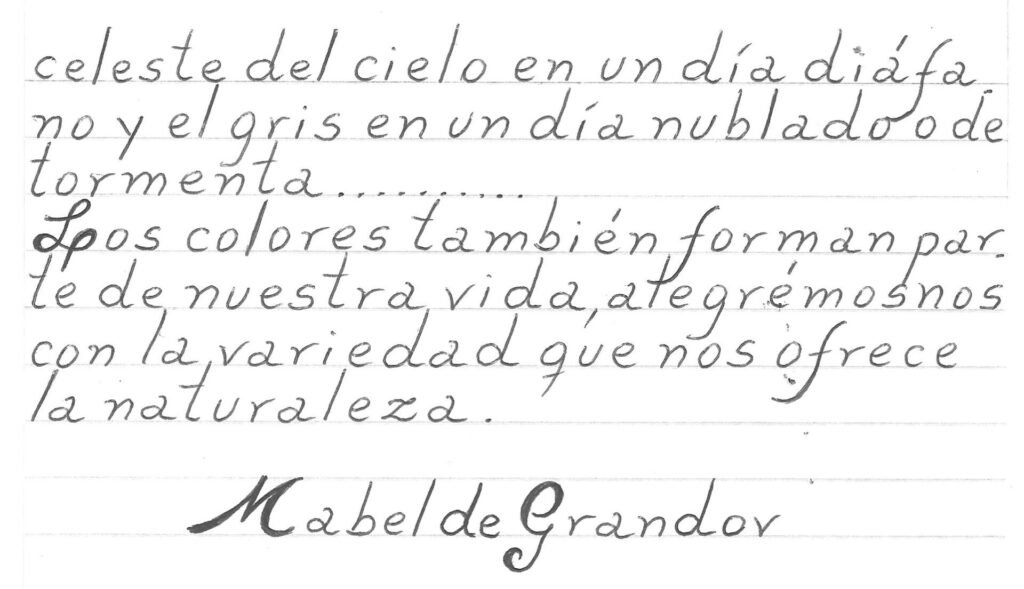 celeste del cielo en un día diáfa-
no y el gris en un día nublado o de
tormenta...........
Los colores también forman par-
te de nuestra vida, alegrémosnos
con la variedad que nos ofrece
la naturaleza.
Mabel de Grandov